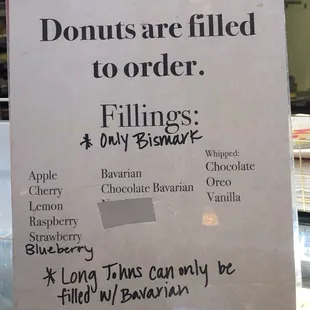 Donuts are filled
to order.
Fillings:
* Only Bismark
Apple
Cherry
Lemon
Raspberry
Strawberry
Blueberry
Bavarian
Chocolate Bavarian
Whipped:
Chocolate
Oreo
Vanilla
* Long Johns can only be
filled w/ Bavarian